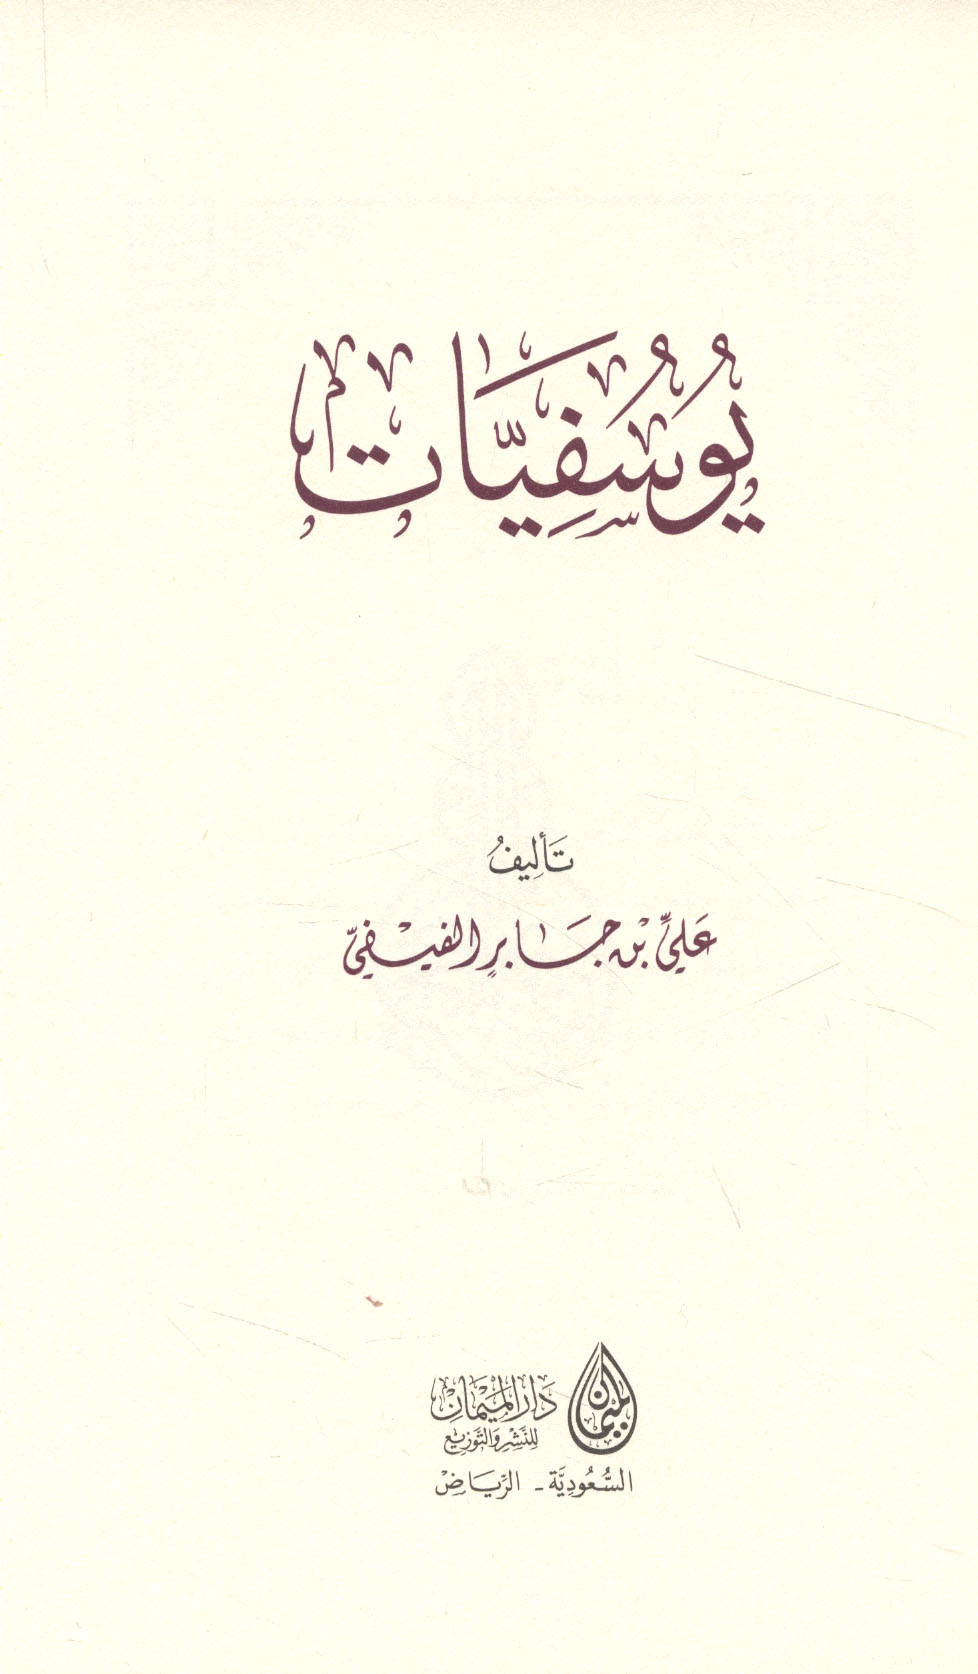 يُوسُفِيَّات
تَأليفُ
عَليِّ بْن جَابرٍ الفيْفيّ
الميمان
دَارُ المَيْمَان
لِلنَّشرِ وَالتَّوزيع
السُّعُوديَّة - الرِّيَاضْ